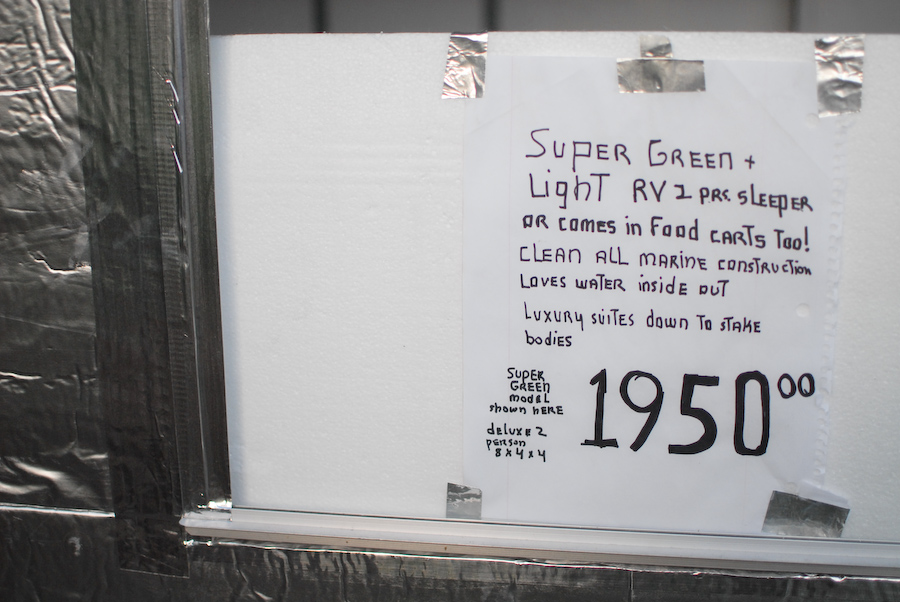 SUPER GREEN +
LighT RV 2 PRS. SLEEPER
OR COMES in Food CARTS Too!
CLEAN ALL MARINE CONSTRUCTION
LOVES WATER inside OUT
LUXURY SUITES down To STAKE
bodies
SUPER
GREEN
modEL
shown HERE
1950⁰⁰
deluxe 2
person
8x4x4